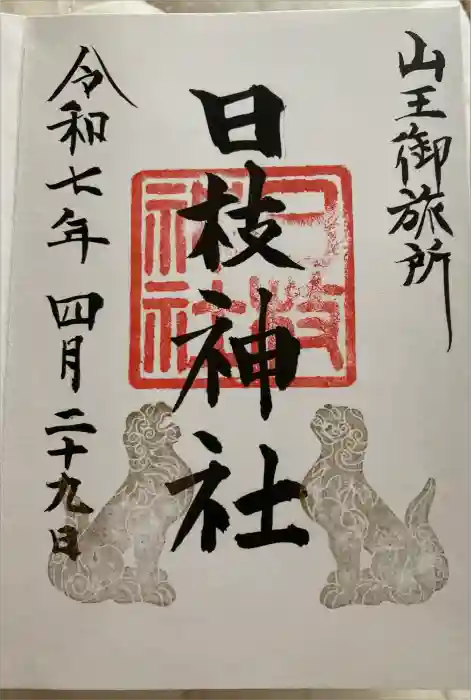 山王御旅所
日枝神社
令和七年 四月二十九日
日枝
神社